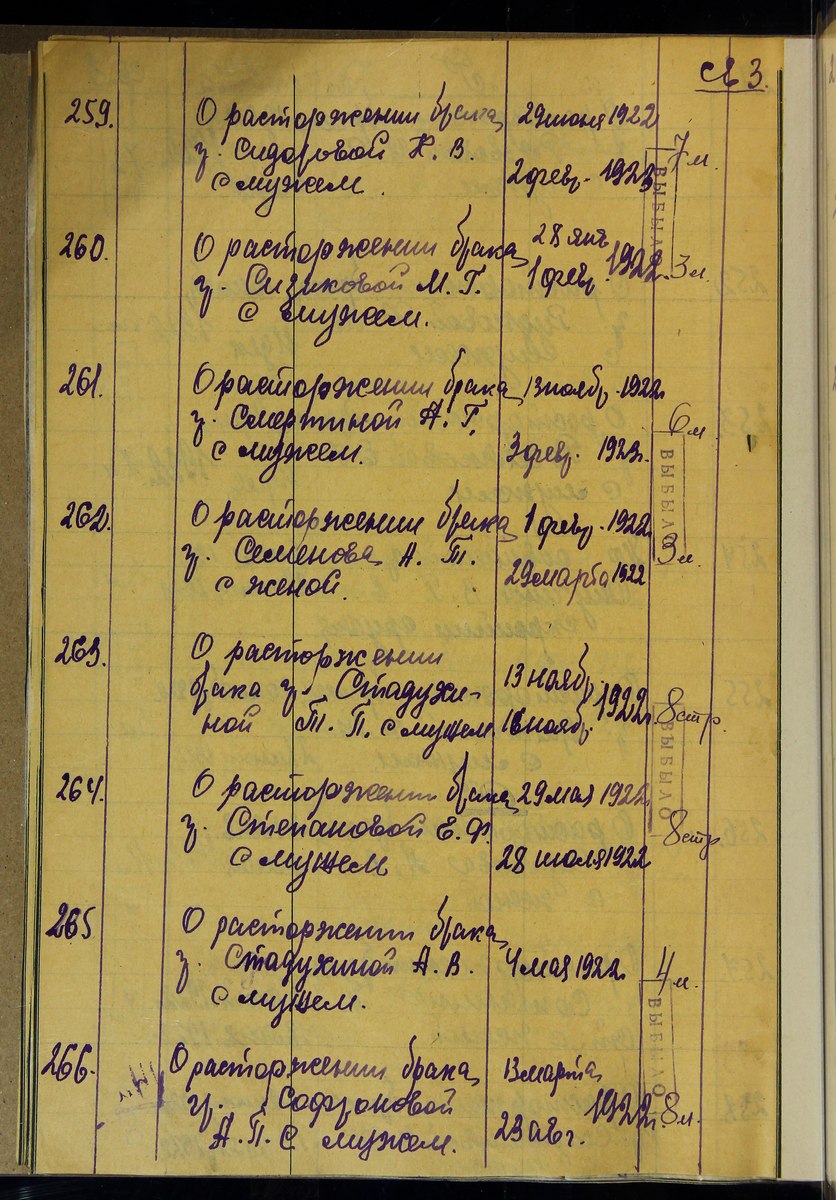 св 3.
259. О расторжении брака 29 июня 1922
г. Сидоровой К. В. 7 л.
с мужем. 2 февр. 1923
ВЫБЫЛО
260. О расторжении брака 28 янв.
г. Сизиковой М. Г. 1 февр. 1922 г. 3 л.
с мужем.
261. О расторжении брака 13 ноябр. 1922 г.
г. Смертиной А. Г. 6 л.
с мужем. 3 февр. 1923 г.
ВЫБЫЛО
262. О расторжении брака 1 февр. 1922 г.
г. Семенова А. Т. 3 л.
с женой. 29 марта 1922
263. О расторжении
брака г. Стадухи- 13 ноябр. 1922 г. 8 стр.
ной Т. П. с мужем 16 ноябр.
ВЫБЫЛО
264. О расторжении брака 29 мая 1922 г.
г. Степановой Е. Ф. 8 стр
с мужем 28 июля 1922
265 О расторжении брака
г. Стадухиной А. В. 4 мая 1922 г. 4 л.
с мужем.
ВЫБЫЛО
266. О расторжении брака 13 марта
гр. Софроновой 1922 г. 8 л.
А. П. с мужем. 23 авг.